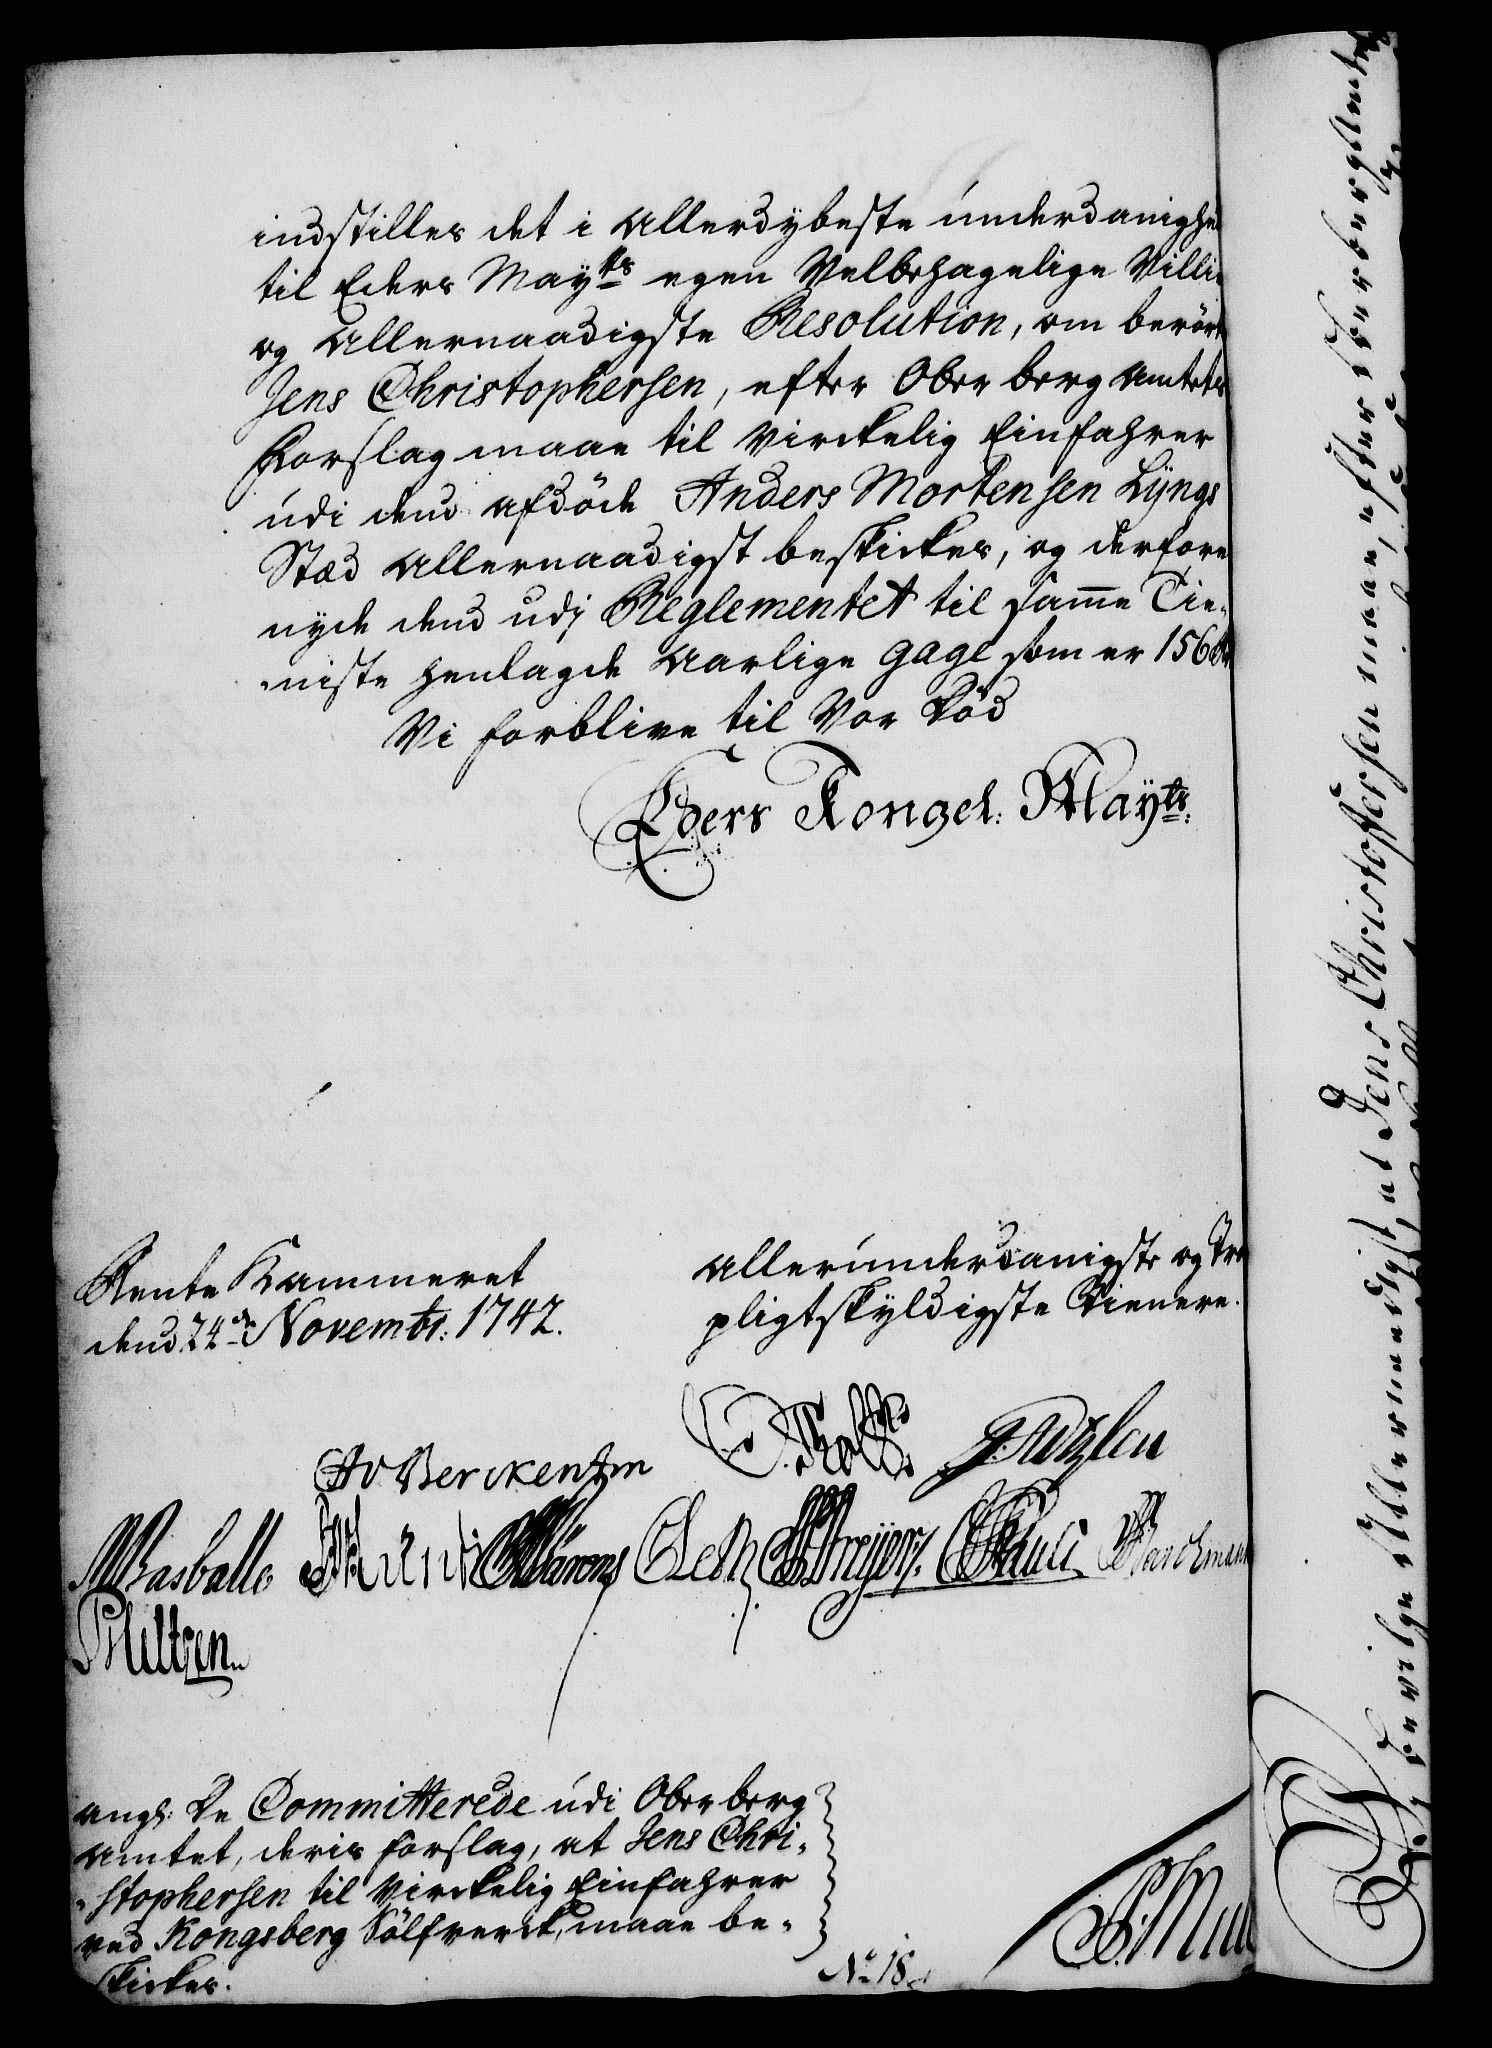 indstilles det i Allerdybeste underdanighe
til Eders May^ts egen Velbehagelige Villi
og Allernaadigste Resolution, om berört
Jens Christophersen, efter Ober berg Amtets
Forslag maae til Virckelig Einfahrer
udi dend afdöde Anders Mortensen Lyngs
Stæd Allernaadigst beskickes, og derfore
nyde dend udj Reglementet til samme Tie-
niste henlagde Aarlige Gage som er 156
Vi forblive til Vor Död
Eders Kongel: May^ts:
Rente Kammeret
dend 24^de Novembr: 1742.
Allerunderdanigste og Tro
pligtskyldigste Tienere.
CAv Berckentin
Rasballe
Angl: De Committerede udi Ober berg
Amtet, deris forslag, at Jens Chri-
stophersen til Virckelig Einfahrer
ved Kongsberg Sölfverck, maae be-
skickes.
No 18
Vj bevilge Allernaadigst, at Jens Christoffersen maae, efter Oberbergamtets